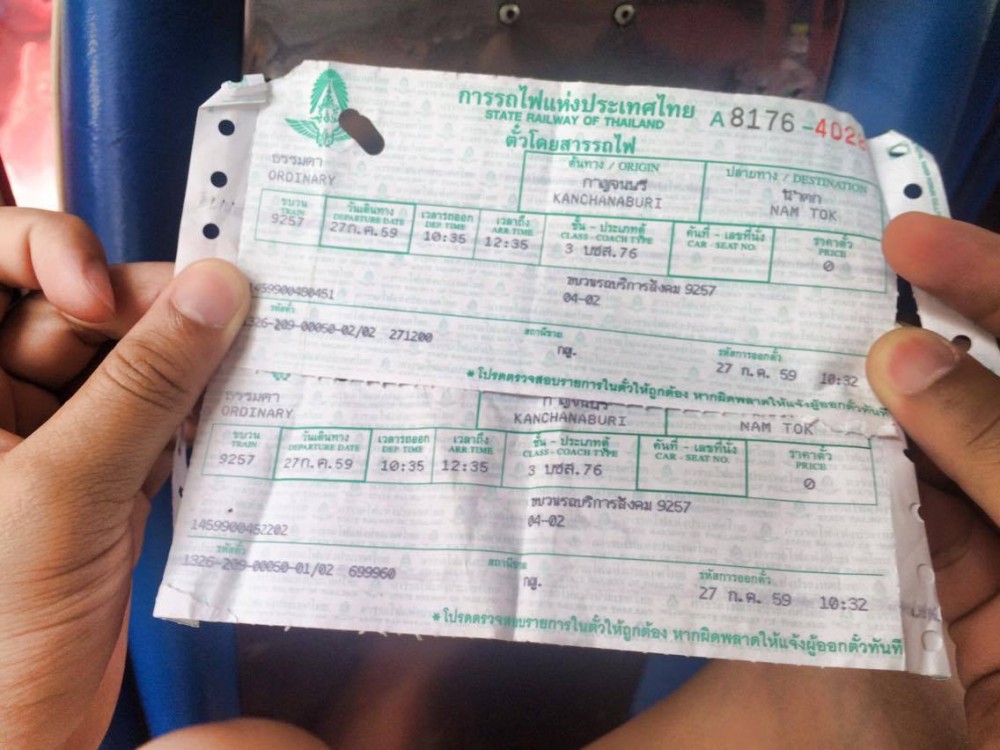 การรถไฟแห่งประเทศไทย
STATE RAILWAY OF THAILAND
A 8176 - 402
ตั๋วโดยสารรถไฟ
ธรรมดา
ORDINARY
ต้นทาง / ORIGIN
กาญจนบุรี
KANCHANABURI
ปลายทาง / DESTINATION
น้ำตก
NAM TOK
ขบวน TRAIN 9257
วันเดินทาง DEPARTURE DATE 27ก.ค.59
เวลารถออก DEP. TIME 10:35
เวลาถึง ARR. TIME 12:35
ชั้น - ประเภทตู้ CLASS - COACH TYPE 3 บชส.76
คันที่ - เลขที่นั่ง CAR - SEAT NO.
ราคาตั๋ว PRICE 0
ขบวนรถบริการสังคม 9257
04-02
1459900480451
รหัสตั๋ว
1326-209-00050-02/02 271200
สถานีขาย
กญ.
รหัสการออกตั๋ว
27 ก.ค. 59 10:32
*โปรดตรวจสอบรายการในตั๋วให้ถูกต้อง หากผิดพลาดให้แจ้งผู้ออกตั๋วทันที
ธรรมดา
ORDINARY
กาญจนบุรี
KANCHANABURI
NAM TOK
ขบวน TRAIN 9257
วันเดินทาง DEPARTURE DATE 27ก.ค.59
เวลารถออก DEP. TIME 10:35
เวลาถึง ARR. TIME 12:35
ชั้น - ประเภทตู้ CLASS - COACH TYPE 3 บชส.76
คันที่ - เลขที่นั่ง CAR - SEAT NO.
ราคาตั๋ว PRICE 0
ขบวนรถบริการสังคม 9257
04-02
1459900452202
รหัสตั๋ว
1326-209-00050-01/02 699960
สถานีขาย
กญ.
รหัสการออกตั๋ว
27 ก.ค. 59 10:32
*โปรดตรวจสอบรายการในตั๋วให้ถูกต้อง หากผิดพลาดให้แจ้งผู้ออกตั๋วทันที